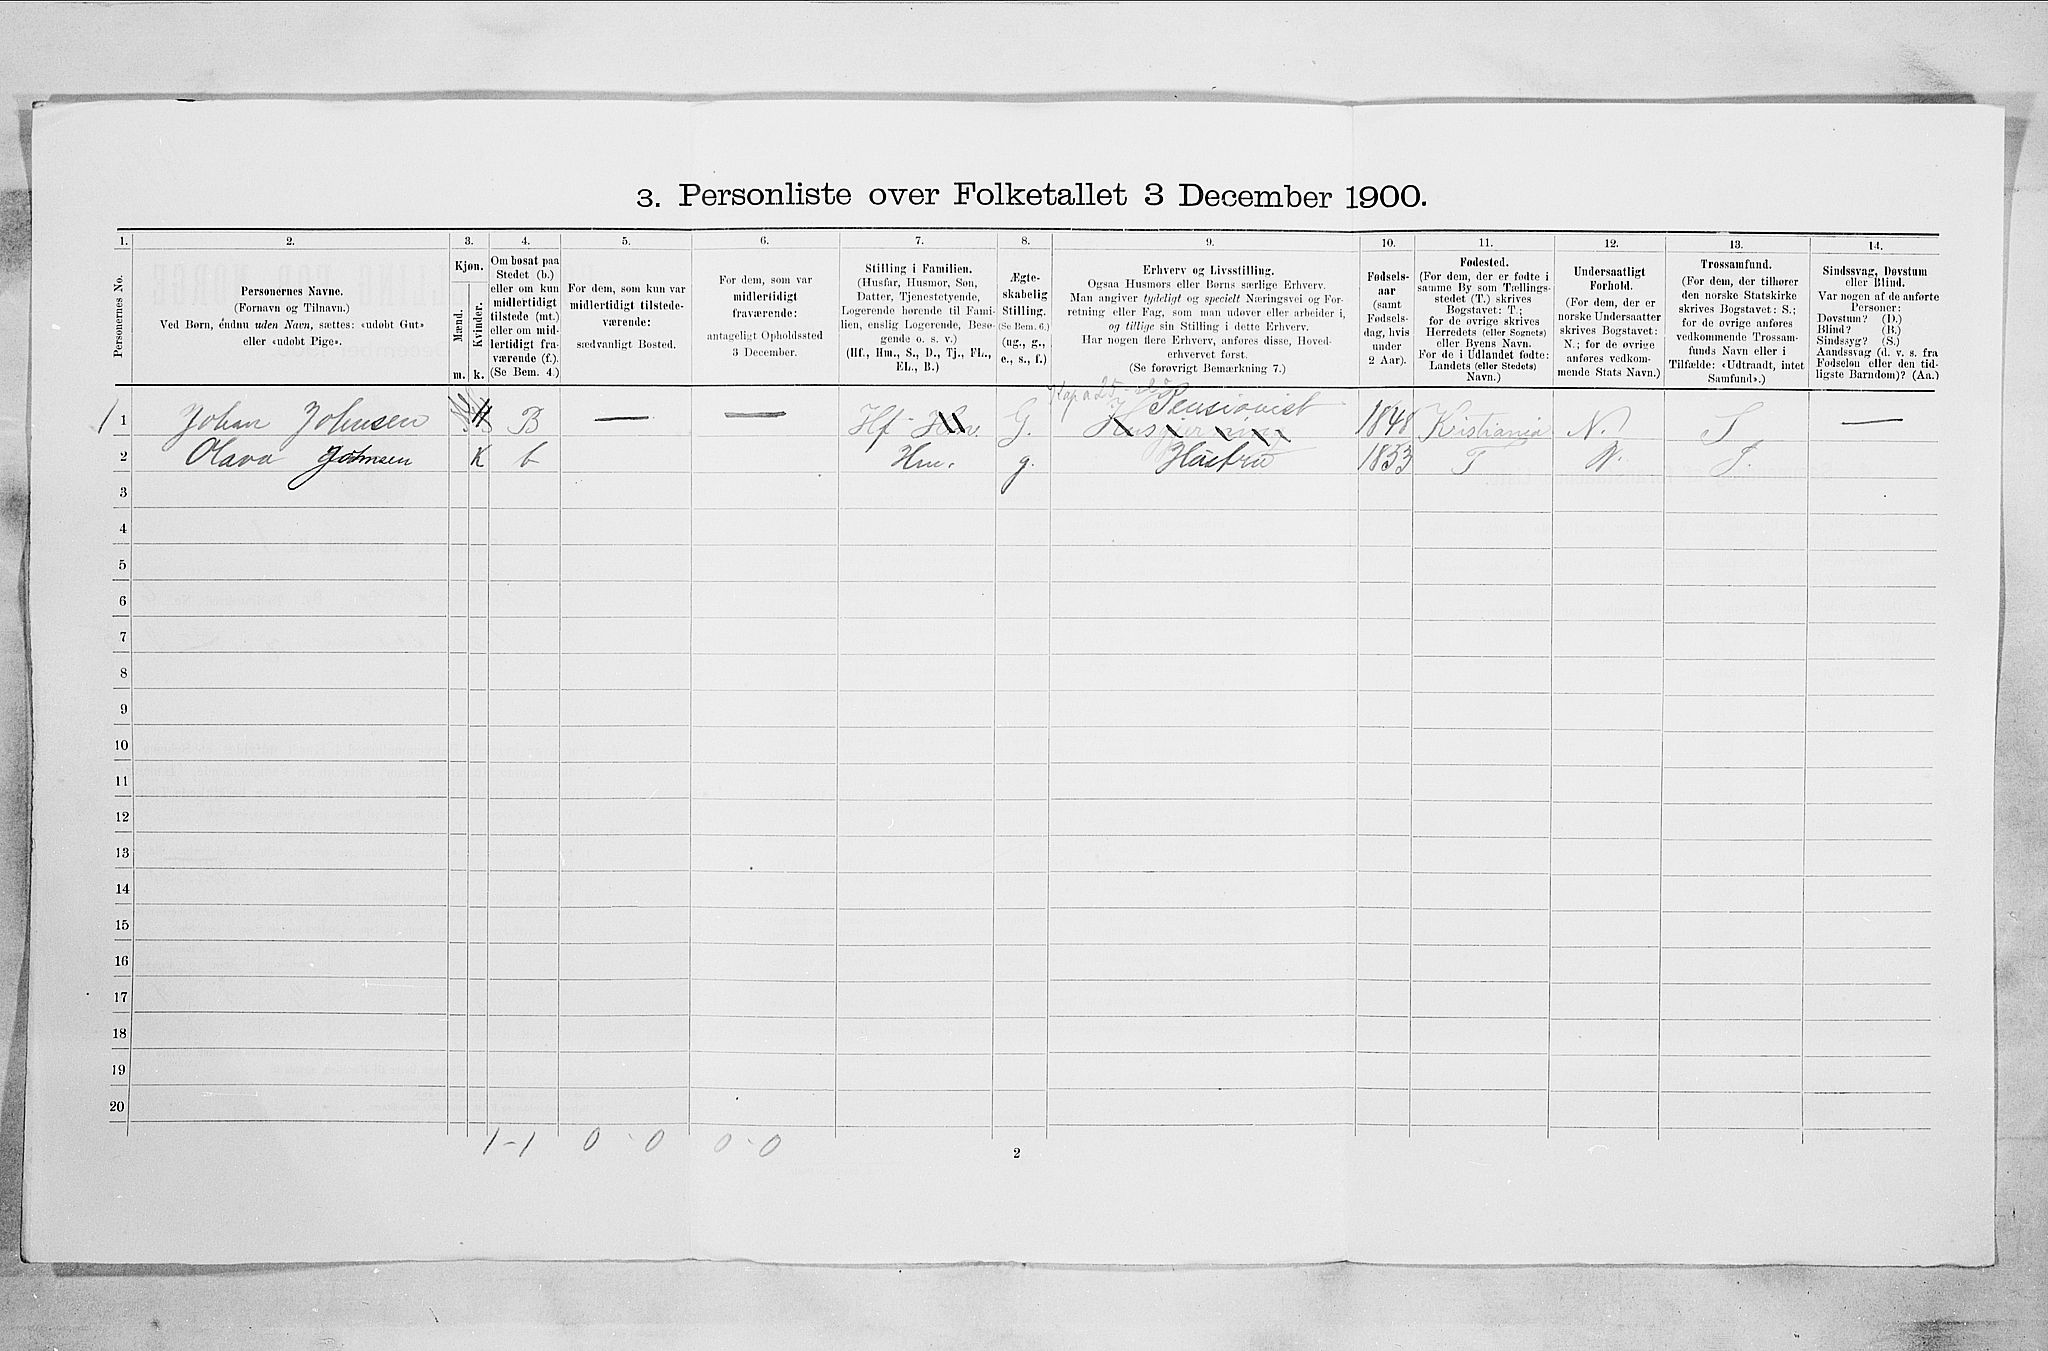 3. Personliste over Folketallet 3 December 1900.
1. 2. 3. 4. 5. 6. 7. 8. 9. 10. 11. 12. 13. 14.
Personernes No.
Personernes Navne.
(Fornavn og Tilnavn.)
Ved Børn, éndnu uden Navn, sættes: «udøbt Gut»
eller «udøbt Pige».
Kjøn.
Mænd.
Kvinder.
m. k.
Om bosat paa
Stedet (b.)
eller om kun
midlertidigt
tilstede (mt.)
eller om mid-
lertidigt fra-
værende (f.).
(Se Bem. 4.)
For dem, som kun var
midlertidigt tilstede-
værende:
sædvanligt Bosted.
For dem, som var
midlertidigt
fraværende:
antageligt Opholdssted
3 December.
Stilling i Familien.
(Husfar, Husmor, Søn,
Datter, Tjenestetyende,
Logerende hørende til Fami-
lien, enslig Logerende, Besø-
gende o. s. v.)
(Hf., Hm., S., D., Tj., FL.,
EL., B.)
Ægte-
skabelig
Stilling.
(Se Bem. 6.)
(ug., g.,
e., s., f.)
Erhverv og Livsstilling.
Ogsaa Husmors eller Børns særlige Erhverv.
Man angiver tydeligt og specielt Næringsvei og For-
retning eller Fag, som man udøver eller arbeider i,
og tillige sin Stilling i dette Erhverv.
Har nogen flere Erhverv, anføres disse, Hoved-
erhvervet først.
(Se forøvrigt Bemærkning 7.)
Fødsels-
aar
(samt
Fødsels-
dag, hvis
under
2 Aar).
Fødested.
(For dem, der er fødte i
samme By som Tællings-
stedet (T.) skrives
Bogstavet: T.;
for de øvrige skrives
Herredets (eller Sognets)
eller Byens Navn.
For de i Udlandet fødte:
Landets (eller Stedets)
Navn.)
Undersaatligt
Forhold.
(For dem, der er
norske Undersaatter
skrives Bogstavet:
N.; for de øvrige
anføres vedkom-
mende Stats Navn.)
Trossamfund.
(For dem, der tilhører
den norske Statskirke
skrives Bogstavet: S.;
for de øvrige anføres
vedkommende Trossam-
funds Navn eller i
Tilfælde: «Udtraadt, intet
Samfund».)
Sindssvag, Døvstum
eller Blind.
Var nogen af de anførte
Personer:
Døvstum? (D.)
Blind? (B.)
Sindssyg? (S.)
Aandssvag (d. v. s. fra
Fødselen eller den tid-
ligste Barndom)? (Aa.)
1 Johan Johnsen B — — Hf Hm. G. Pensionist 1848 Kristiania N. S —
2 Olava Johnsen K b Hm. g. Hustru 1853 T N. S.
3
4
5
6
7
8
9
10
11
12
13
14
15
16
17
18
19
20
1-1 0-0 0-0
2